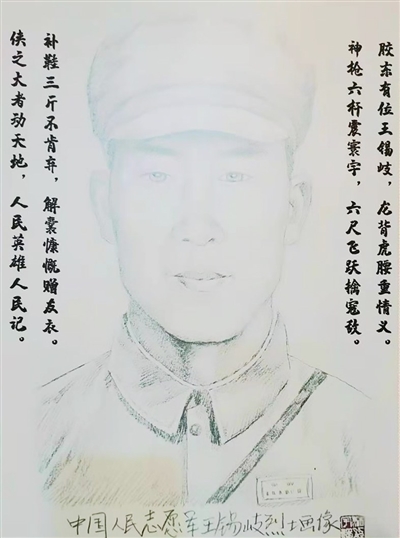 胶东有位王锡岐，龙背虎腰重情义。
神枪六杆震寰宇，六尺飞跃擒寇敌。
补鞋三斤不肯弃，解囊慷慨赠友衣。
侠之大者动天地，人民英雄人民记。
中国人民志愿军王锡岐烈士画像